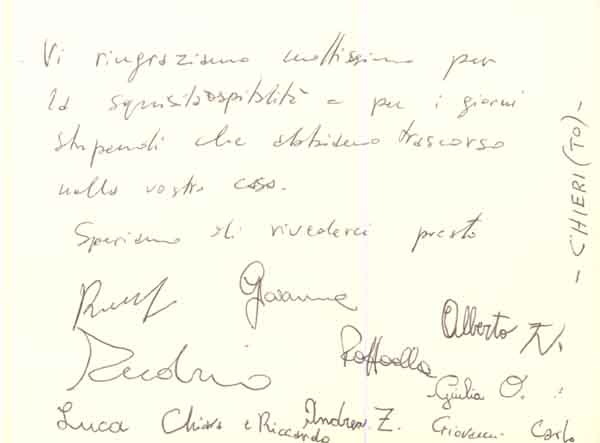 Vi ringraziamo moltissimo per
la squisita ospitalità e per i giorni
stupendi che abbiamo trascorso
nella vostra casa.
Speriamo di rivederci presto
- CHIERI (TO) -
Alberto N.
Raffaella
Giulia O.
Luca Chiara e Riccardo Andrea Z. Giovanni Carlo